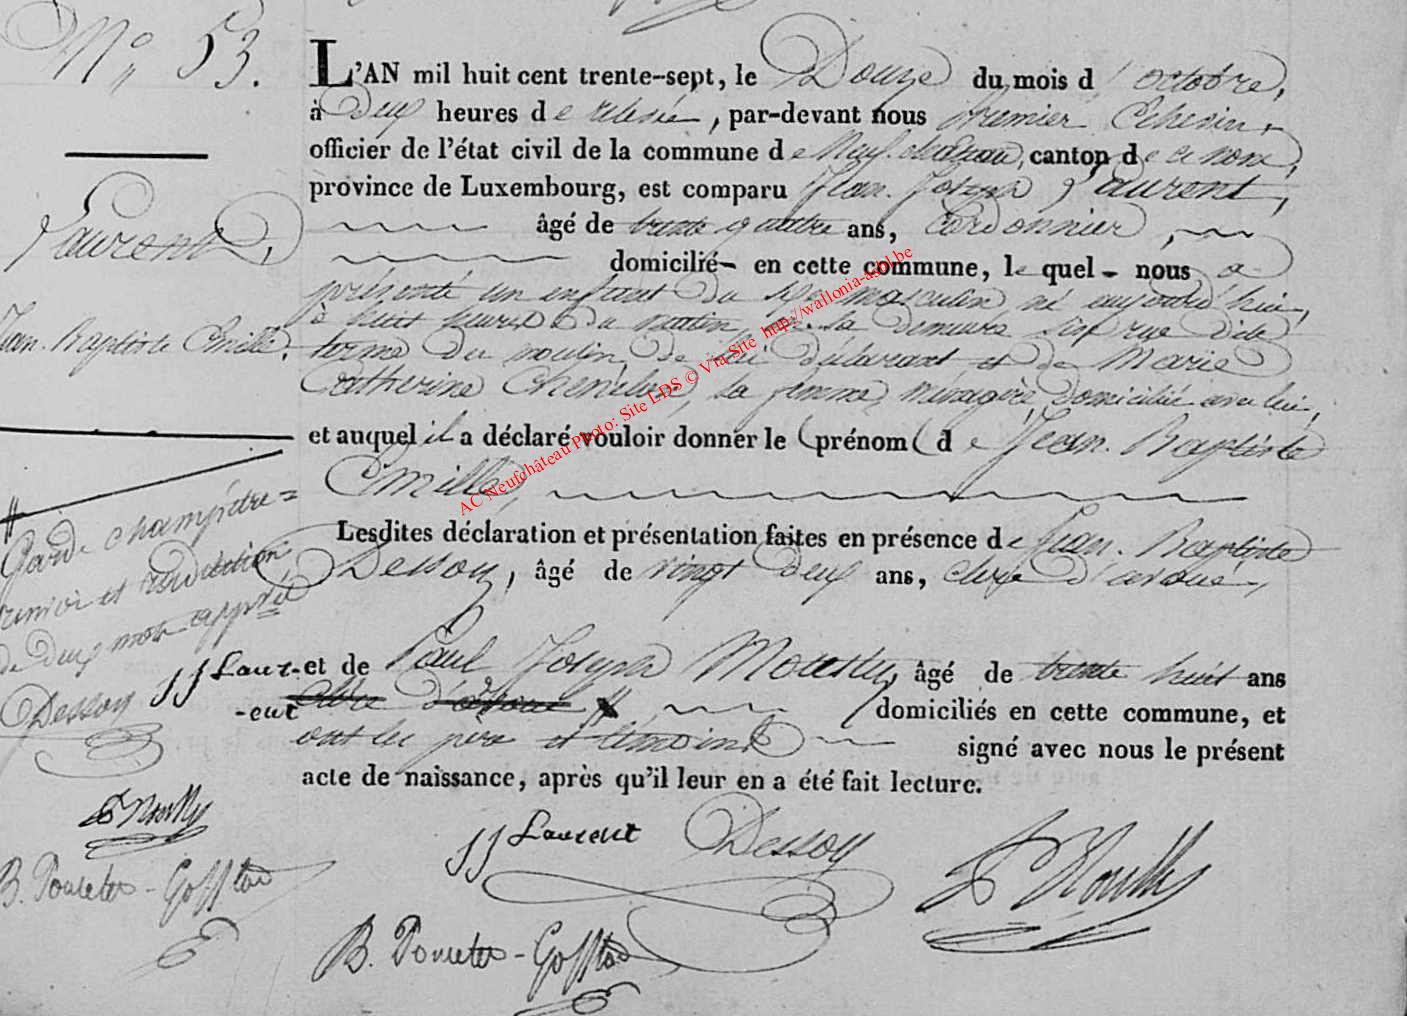 N° 53.
L'AN mil huit cent trente-sept, le Douze du mois d'octobre,
à deux heures de relevée, par-devant nous premier Echevin,
officier de l'état civil de la commune de Neufchâteau, canton de ce nom,
province de Luxembourg, est comparu Jean Joseph Laurent,
âgé de trente quatre ans, Cordonnier,
domicilié en cette commune, lequel nous a
présenté un enfant du sexe masculin né aujourd'hui,
à huit heures du matin, en la demeure, sise rue dite
terme du moulin, de lui déclarant et de Marie
Catherine, sa femme, ménagère domiciliée avec lui,
et auquel il a déclaré vouloir donner le (prénom( de Jean. Baptiste
Emille,
Lesdites déclaration et présentation faites en présence de Jean. Baptiste
Dessoy, âgé de vingt deux ans, clerc d'avoué,
et de Paul Joseph âgé de trente huit ans
domiciliés en cette commune, et
ont les père et témoins signé avec nous le présent
acte de naissance, après qu'il leur en a été fait lecture.
Laurent,
Jean. Baptiste Emille.
Garde champêtre
de deux mots
Dessoy
JJ Laur-
-ent
B. Poncelet-Goffton
JJ Laurent Dessoy
B. Poncelet-Goffton
AC Neufchâteau Photo: Site LDS © Via Site http://wallonia-asbl.be